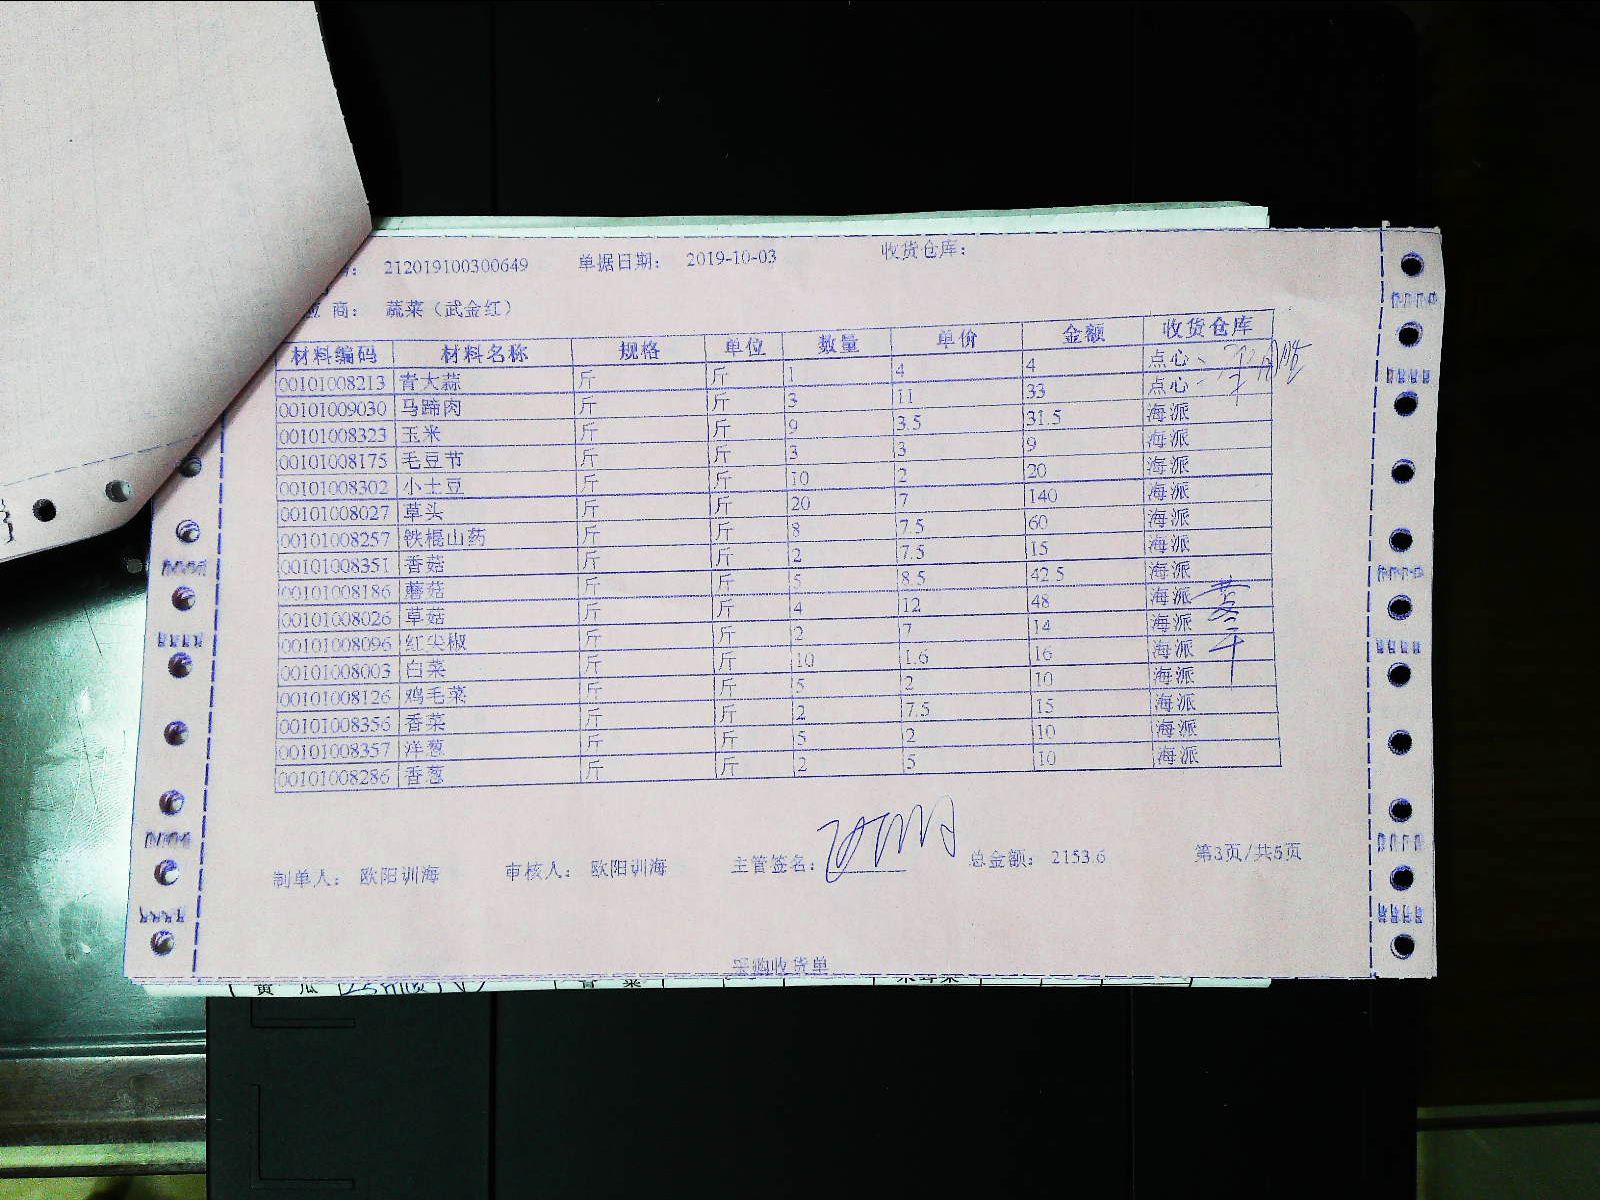 212019100300649 单据日期： 2019-10-03 收货仓库：
商： 蔬菜（武金红）
材料编码 材料名称 规格 单位 数量 单价 金额 收货仓库
00101008213 青大蒜 斤 斤 1 4 4 点心
00101009030 马蹄肉 斤 斤 3 11 33 点心
00101008323 玉米 斤 斤 9 3.5 31.5 海派
00101008175 毛豆节 斤 斤 3 3 9 海派
00101008302 小土豆 斤 斤 10 2 20 海派
00101008027 草头 斤 斤 20 7 140 海派
00101008257 铁棍山药 斤 斤 8 7.5 60 海派
00101008351 香菇 斤 斤 2 7.5 15 海派
00101008186 蘑菇 斤 斤 5 8.5 42.5 海派
00101008026 草菇 斤 斤 4 12 48 海派
00101008096 红尖椒 斤 斤 2 7 14 海派
00101008003 白菜 斤 斤 10 1.6 16 海派
00101008126 鸡毛菜 斤 斤 5 2 10 海派
00101008356 香菜 斤 斤 2 7.5 15 海派
00101008357 洋葱 斤 斤 5 2 10 海派
00101008286 香葱 斤 斤 2 5 10 海派
制单人： 欧阳训海 审核人： 欧阳训海 主管签名： 总金额： 2153.6 第3页/共5页
采购收货单
黄 瓜